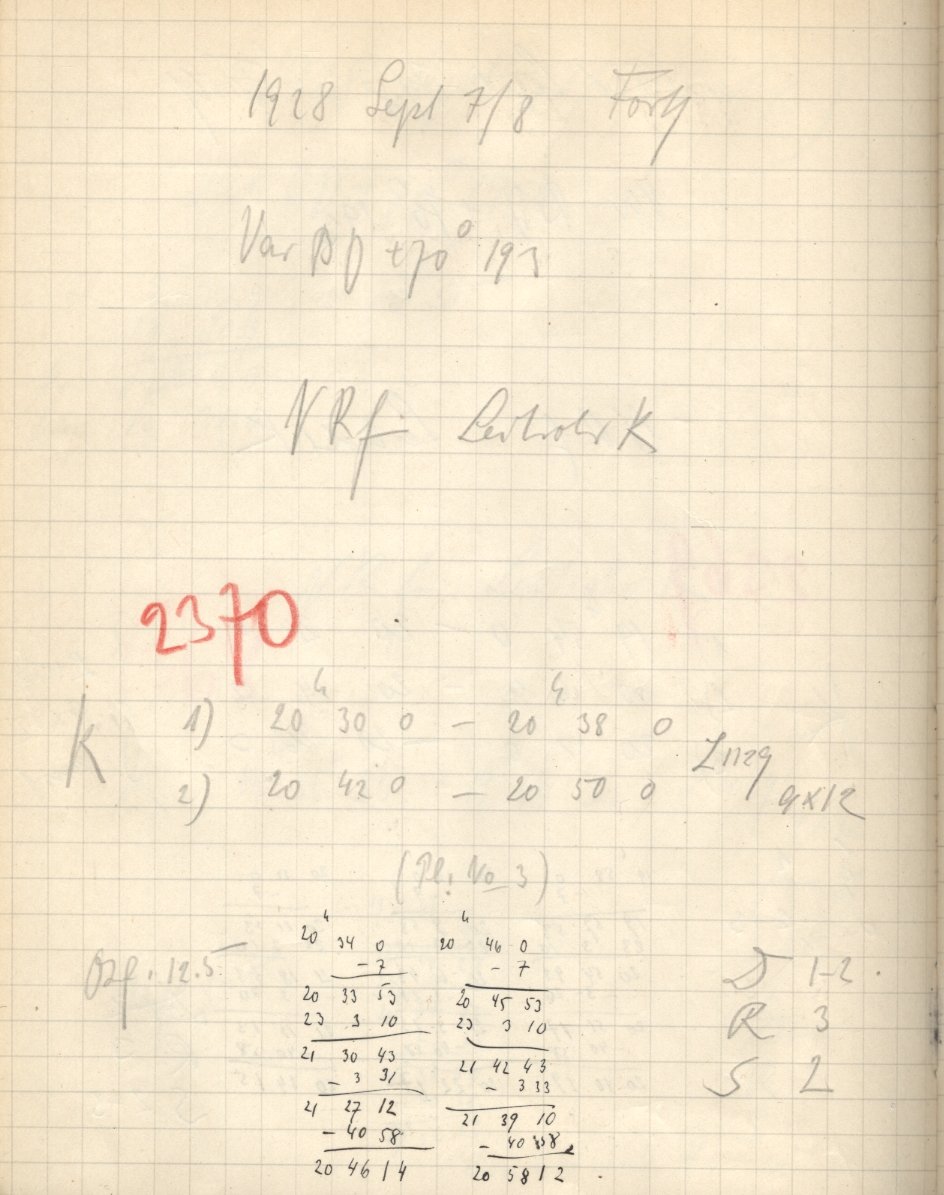 1928 Sept 7/8
Var BD +70° 193
V Rf
2370
K
1) 20ʰ 30 0 — 20ʰ 38 0
2) 20 42 0 — 20 50 0
9x12
(Pl. No 3)
20ʰ 34 0 20ʰ 46 0
Ozg. 12.5 - 7 - 7 D 1-2.
20 33 53 20 45 53
23 3 10 23 3 10 R 3
21 30 43 21 42 43
- 3 31 - 3 33 S 2
21 27 12 21 39 10
- 40 58 - 40 58
20 46 14 20 58 12